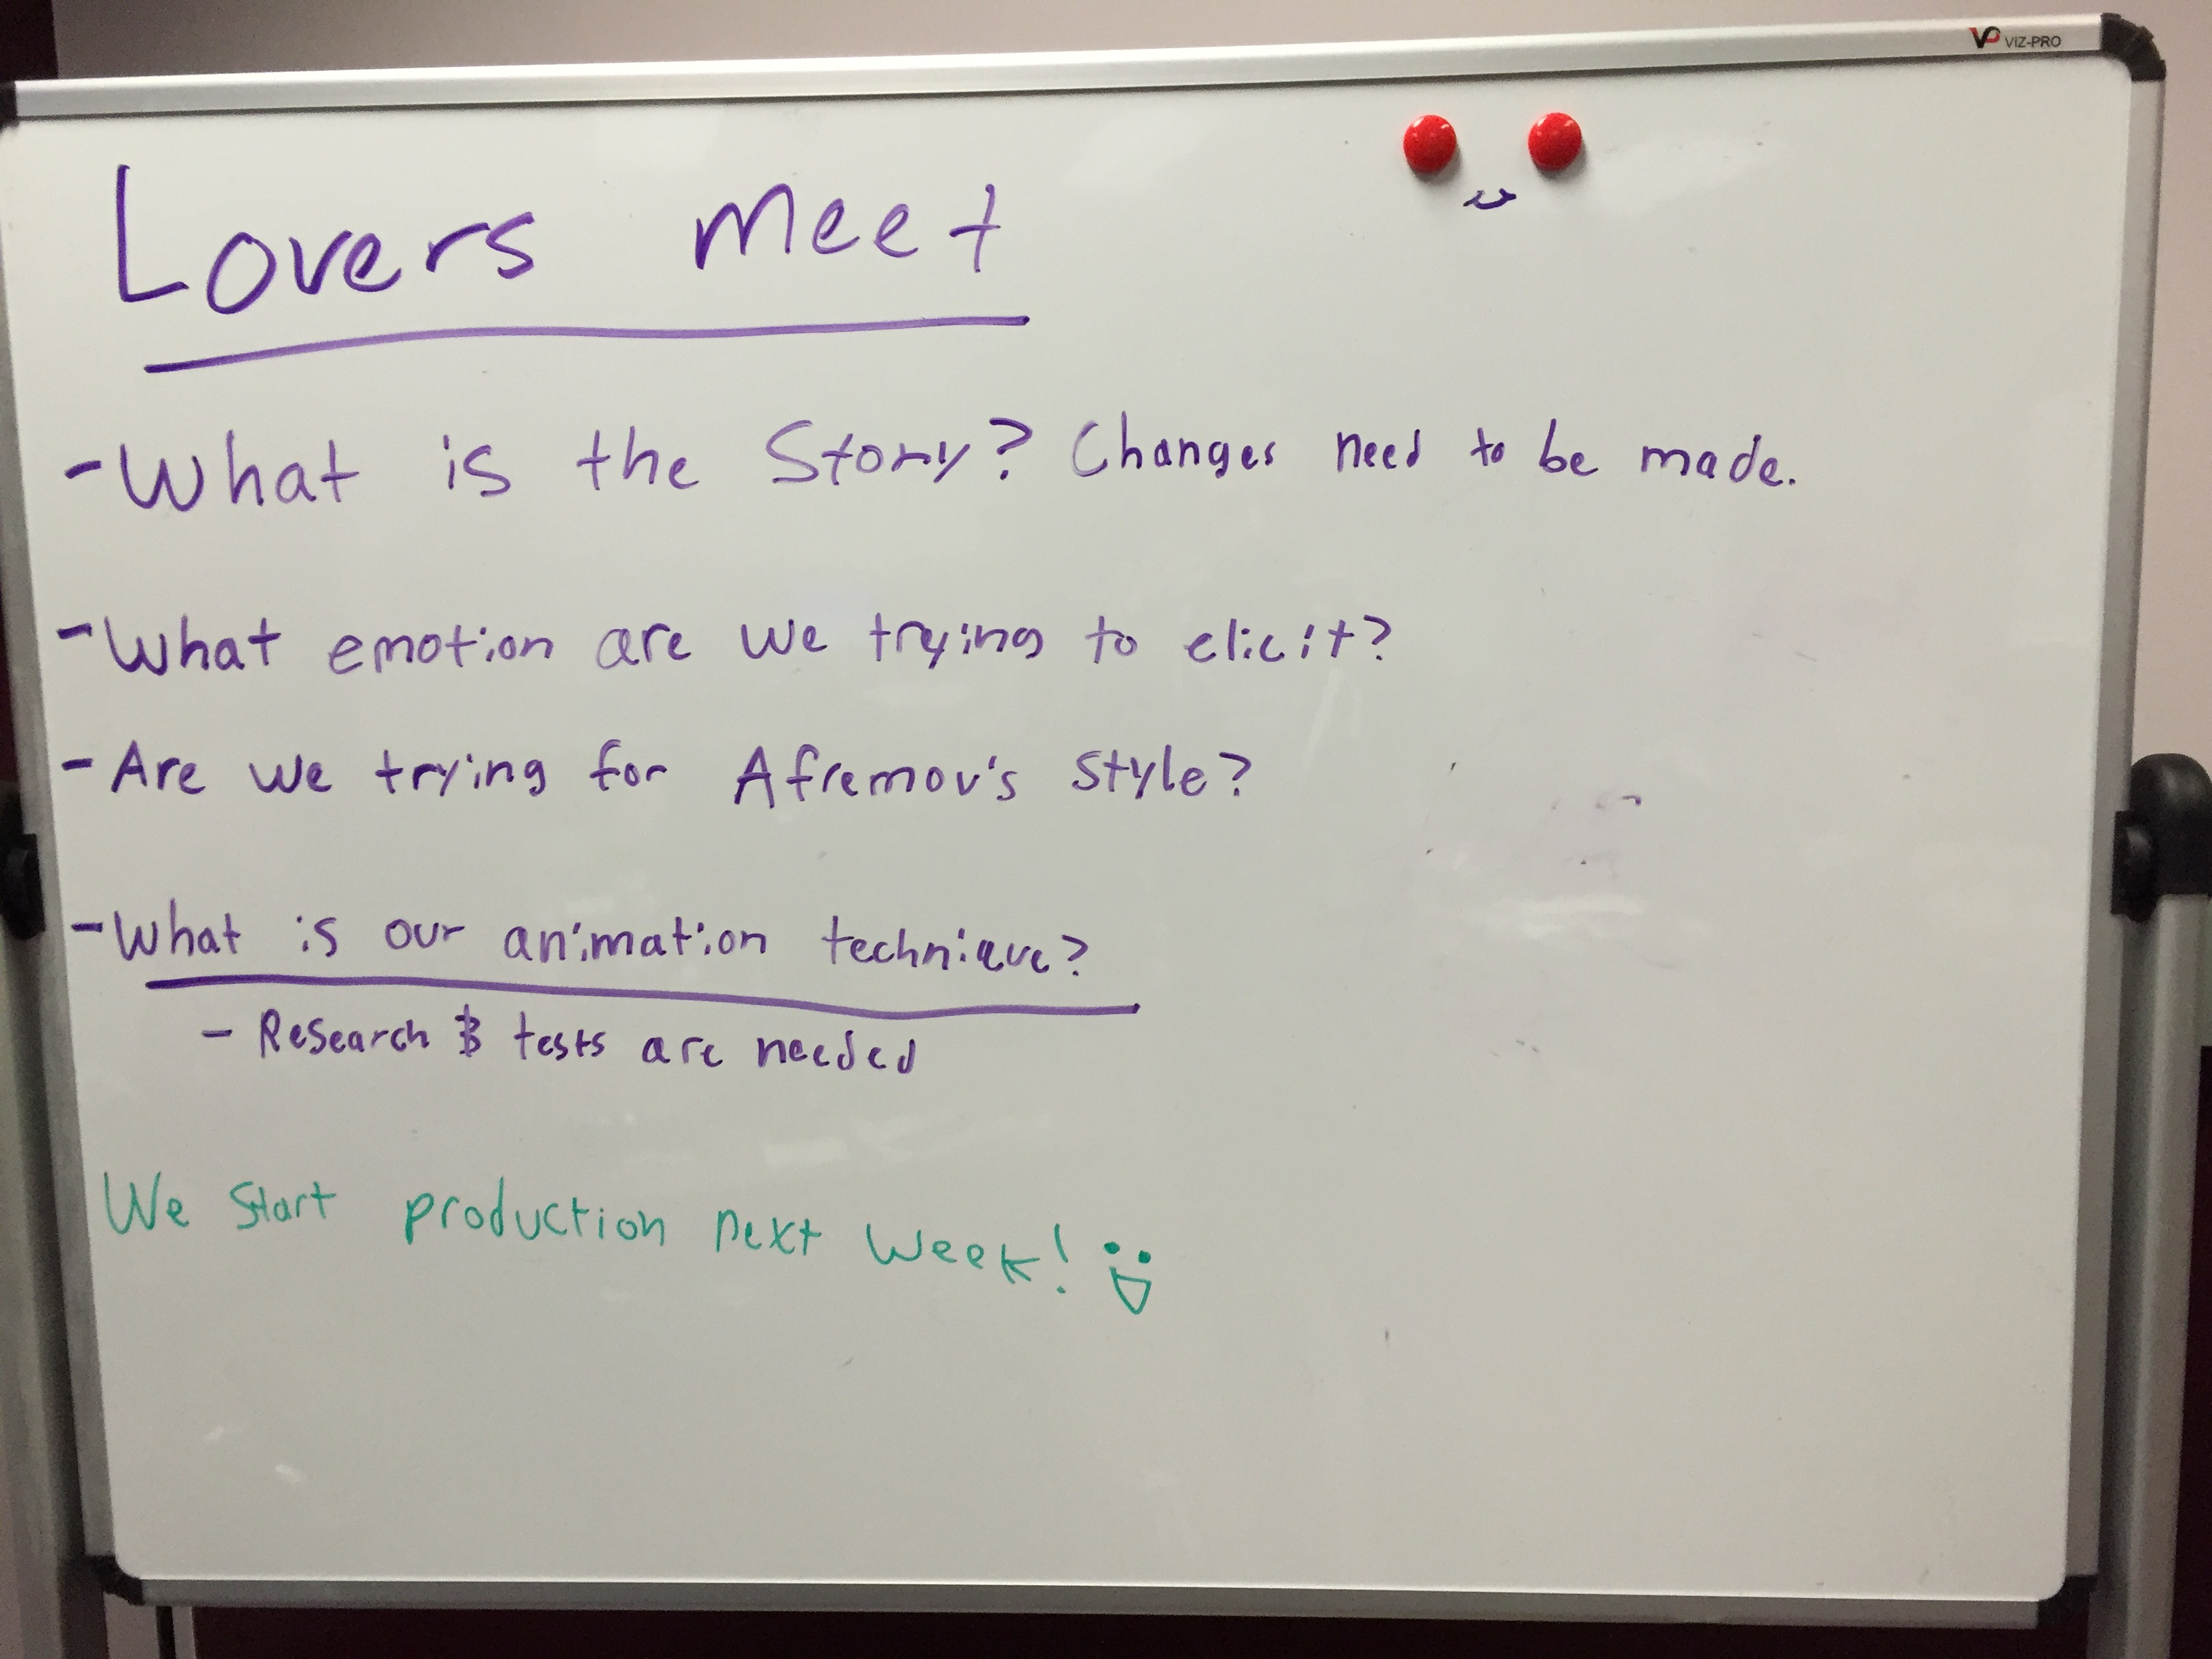 VP VIZ-PRO
Lovers meet
- What is the Story? Changes need to be made.
- What emotion are we trying to elicit?
- Are we trying for Afremov's style?
- What is our animation technique?
- Research & tests are needed
We start production next week!